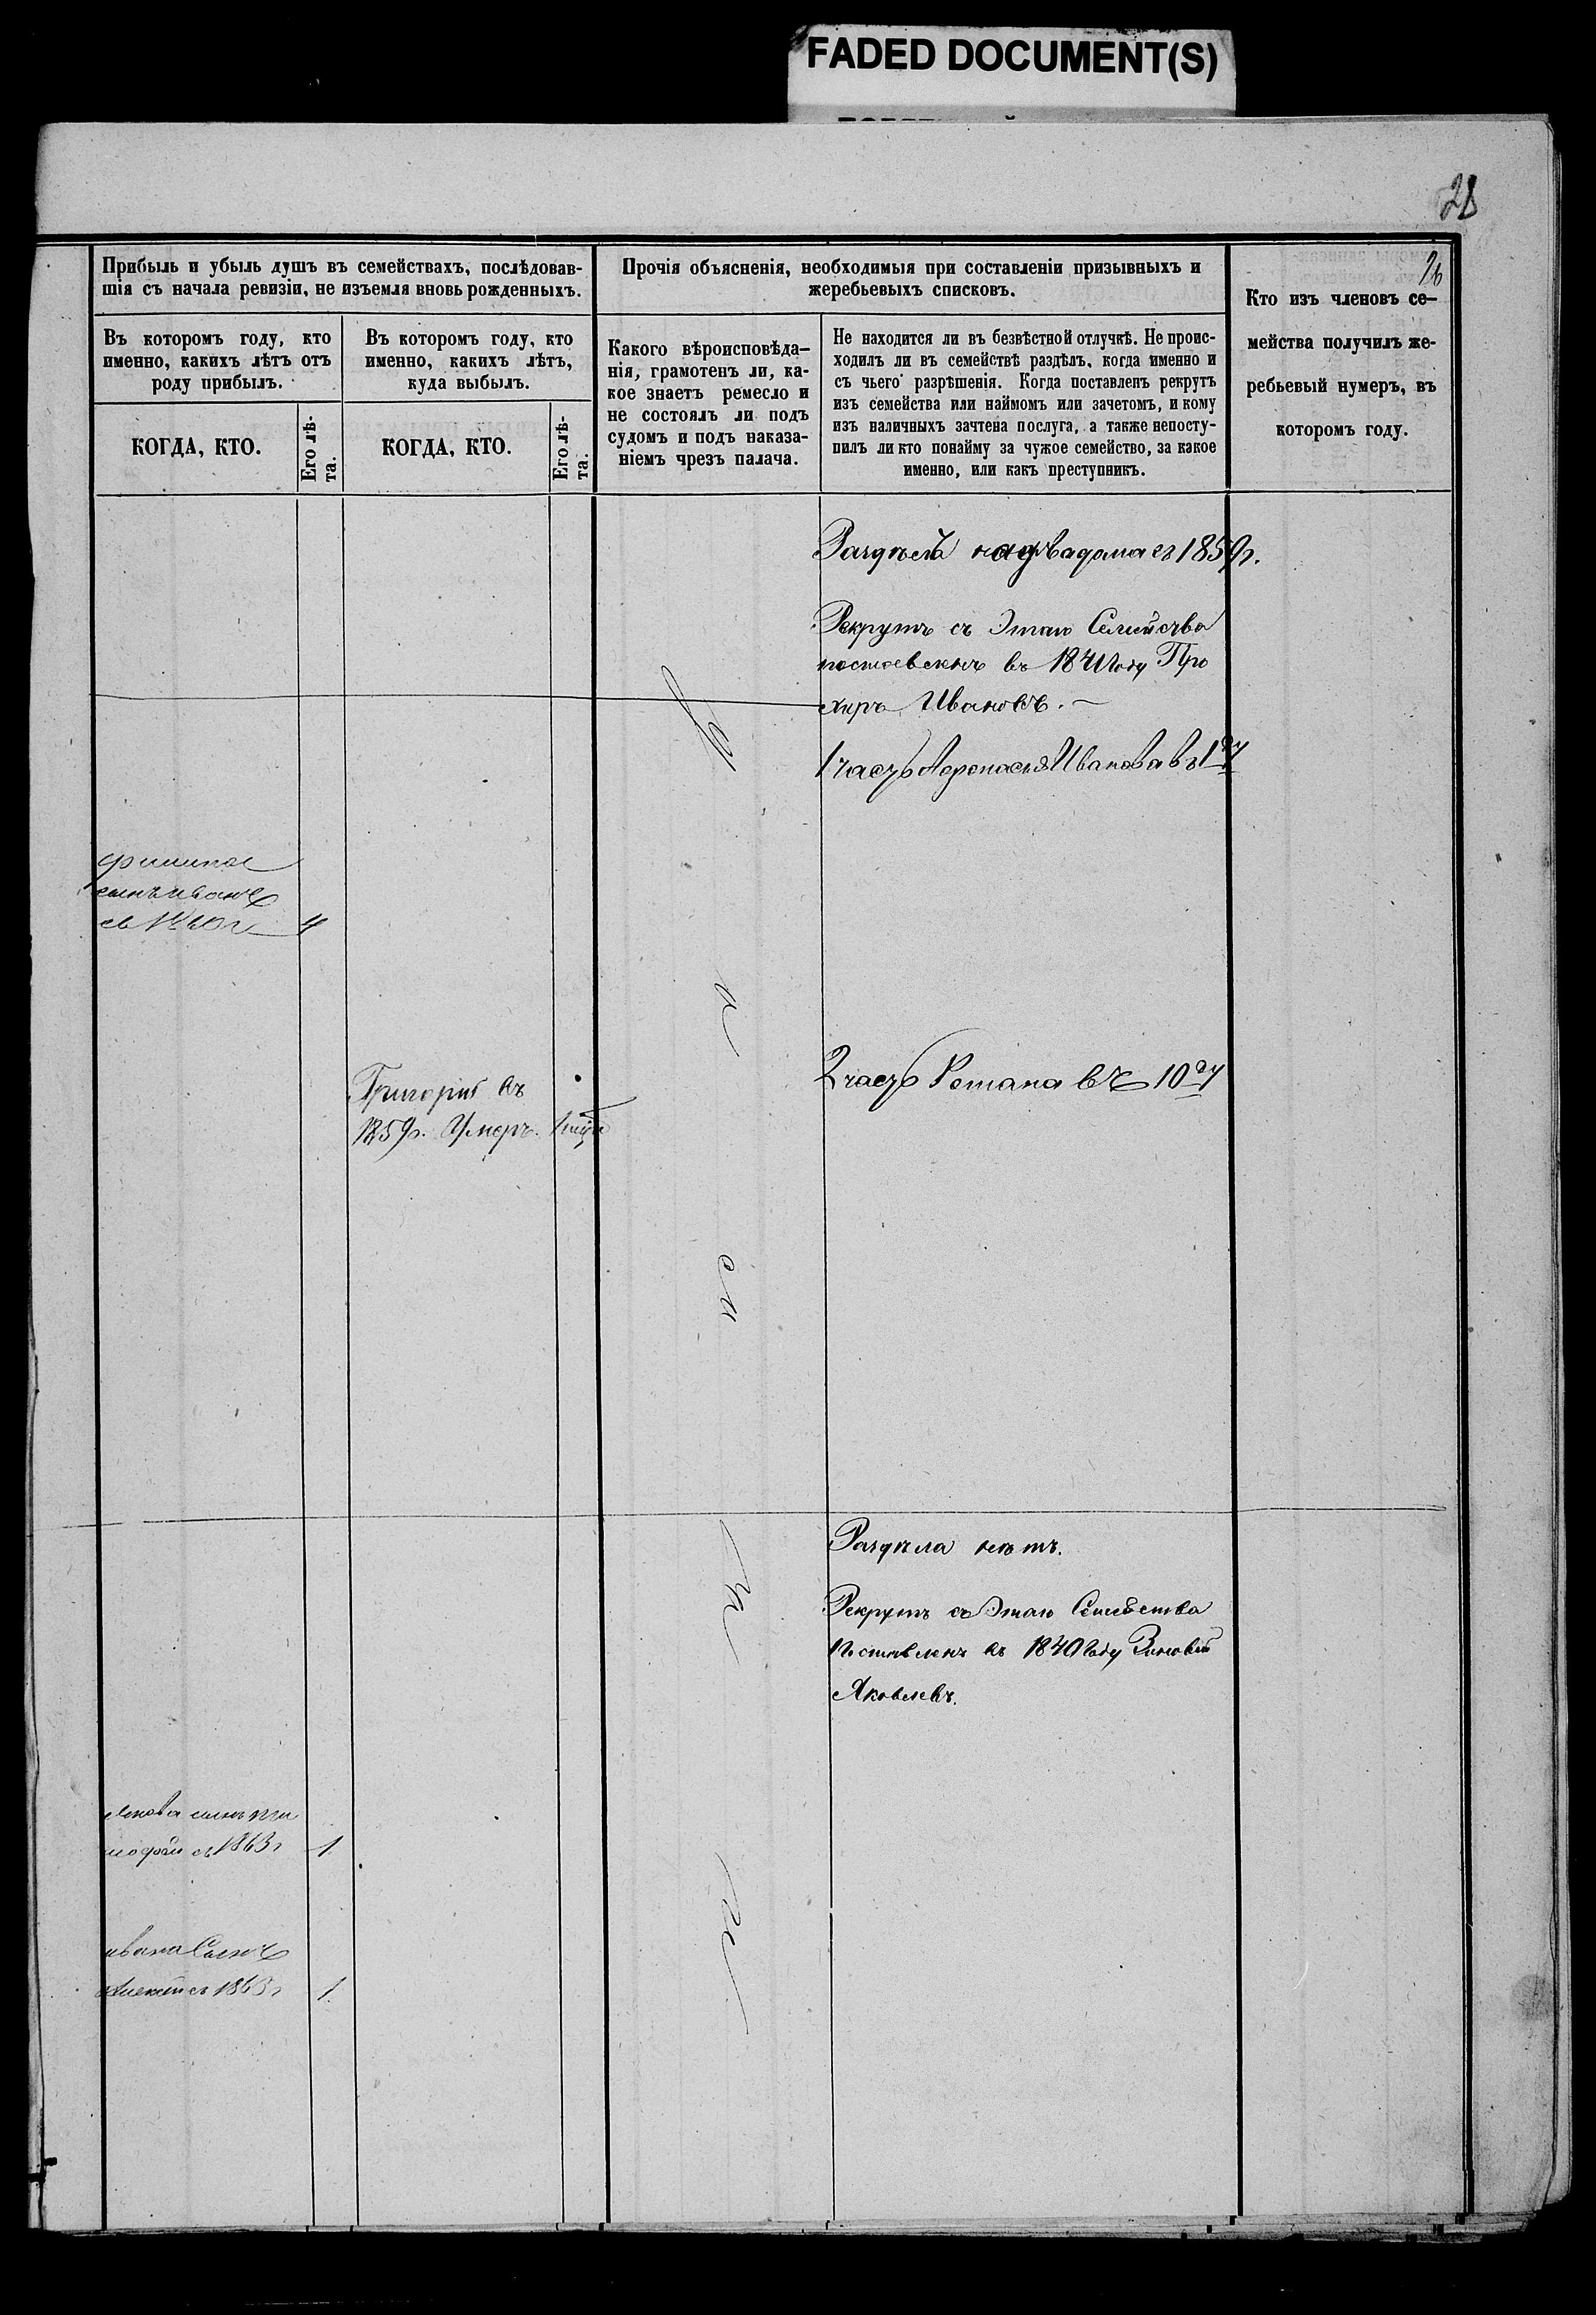 FADED DOCUMENT(S)
28
26
Прибыль и убыль душъ въ семействахъ, послѣдовав-
шія съ начала ревизіи, не изъемля вновь рожденныхъ.
Въ которомъ году, кто
именно, какихъ лѣтъ отъ
роду прибылъ.
КОГДА, КТО.
Его лѣ-
та.
Въ которомъ году, кто
именно, какихъ лѣтъ,
куда выбылъ.
КОГДА, КТО.
Его лѣ-
та.
Прочія объясненія, необходимыя при составленіи призывныхъ и
жеребьевыхъ списковъ.
Какого вѣроисповѣда-
нія, грамотенъ ли, ка-
кое знаетъ ремесло и
не состоялъ ли подъ
судомъ и подъ наказа-
ніемъ чрезъ палача.
Не находится ли въ безвѣстной отлучкѣ. Не проис-
ходилъ ли въ семействѣ раздѣлъ, когда именно и
съ чьего разрѣшенія. Когда поставленъ рекрутъ
изъ семейства или наймомъ или зачетомъ, и кому
изъ наличныхъ зачтена послуга, а также непосту-
пилъ ли кто понайму за чужое семейство, за какое
именно, или какъ преступникъ.
Кто изъ членовъ се-
мейства получилъ же-
ребьевый нумеръ, въ
которомъ году.
Раздѣлъ на два дома съ 1859г.
Рекрутъ съ Этаго Семейства
поставленъ въ 1841 году Про
хиръ Ивановъ.
1 часть Иванова въ 1
сынъ иванъ
4
Григорій въ
1859г. Умеръ.
2 часть Романа въ 10
Раздѣла нѣтъ.
Рекрутъ съ Этаго Семейства
Поставленъ въ 1840 году Зиновій
Яковлевъ.
сынъ ти
мофѣй съ 1863г 1
ивана Сынъ
Алексѣй съ 1863г 1